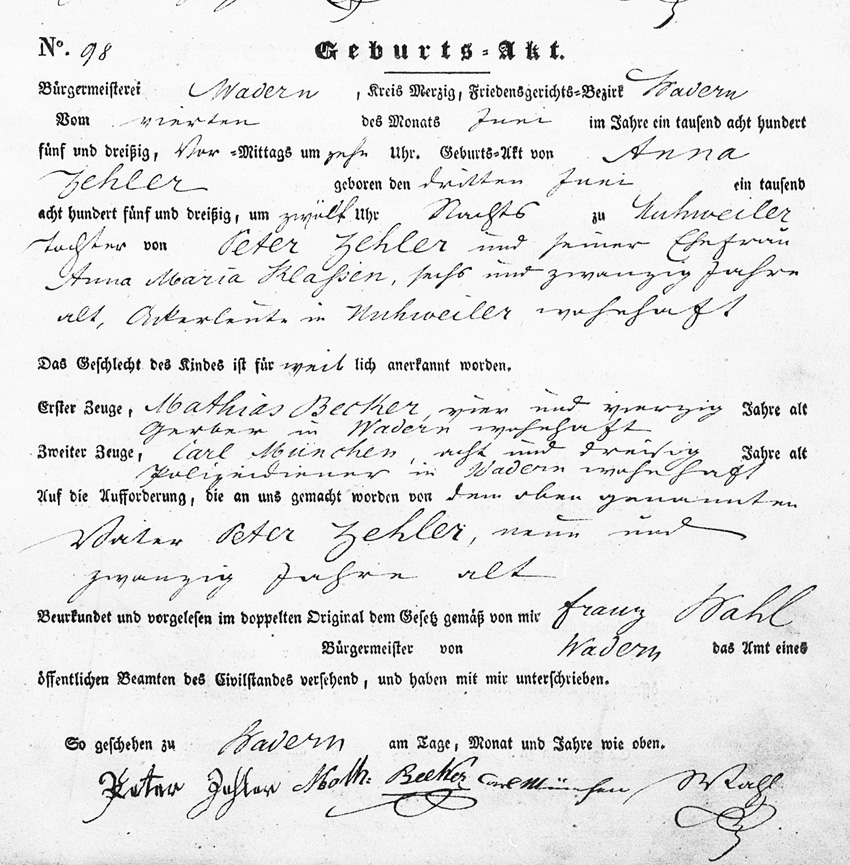 No. 98 Geburts-Akt.
Bürgermeisterei Wadern, Kreis Merzig, Friedensgerichts-Bezirk Wadern
Vom vierten des Monats Juni im Jahre ein tausend acht hundert
fünf und dreißig, Vor-Mittags um zehn Uhr. Geburts-Akt von Anna
Zehler geboren den dritten Juni ein tausend
acht hundert fünf und dreißig, um zwölf Uhr Nachts zu Nuhweiler
Tochter von Peter Zehler und seiner Ehefrau
Anna Maria Klassen, sechs und zwanzig Jahre
alt, Ackerleute in Nuhweiler wohnhaft
Das Geschlecht des Kindes ist für weiblich anerkannt worden.
Erster Zeuge, Mathias Becker, vier und vierzig Jahre alt
Gerber in Wadern wohnhaft
Zweiter Zeuge, Carl München, acht und dreisig Jahre alt
Polizeidiener in Wadern wohnhaft
Auf die Aufforderung, die an uns gemacht worden von dem oben genannten
Vater Peter Zehler, neun und
zwanzig Jahre alt
Beurkundet und vorgelesen im doppelten Original dem Gesetz gemäß von mir Franz Wahl
Bürgermeister von Wadern das Amt eines
öffentlichen Beamten des Civilstandes versehend, und haben mit mir unterschrieben.
So geschehen zu Wadern am Tage, Monat und Jahre wie oben.
Peter Zehler Math: Becker Carl München Wahl